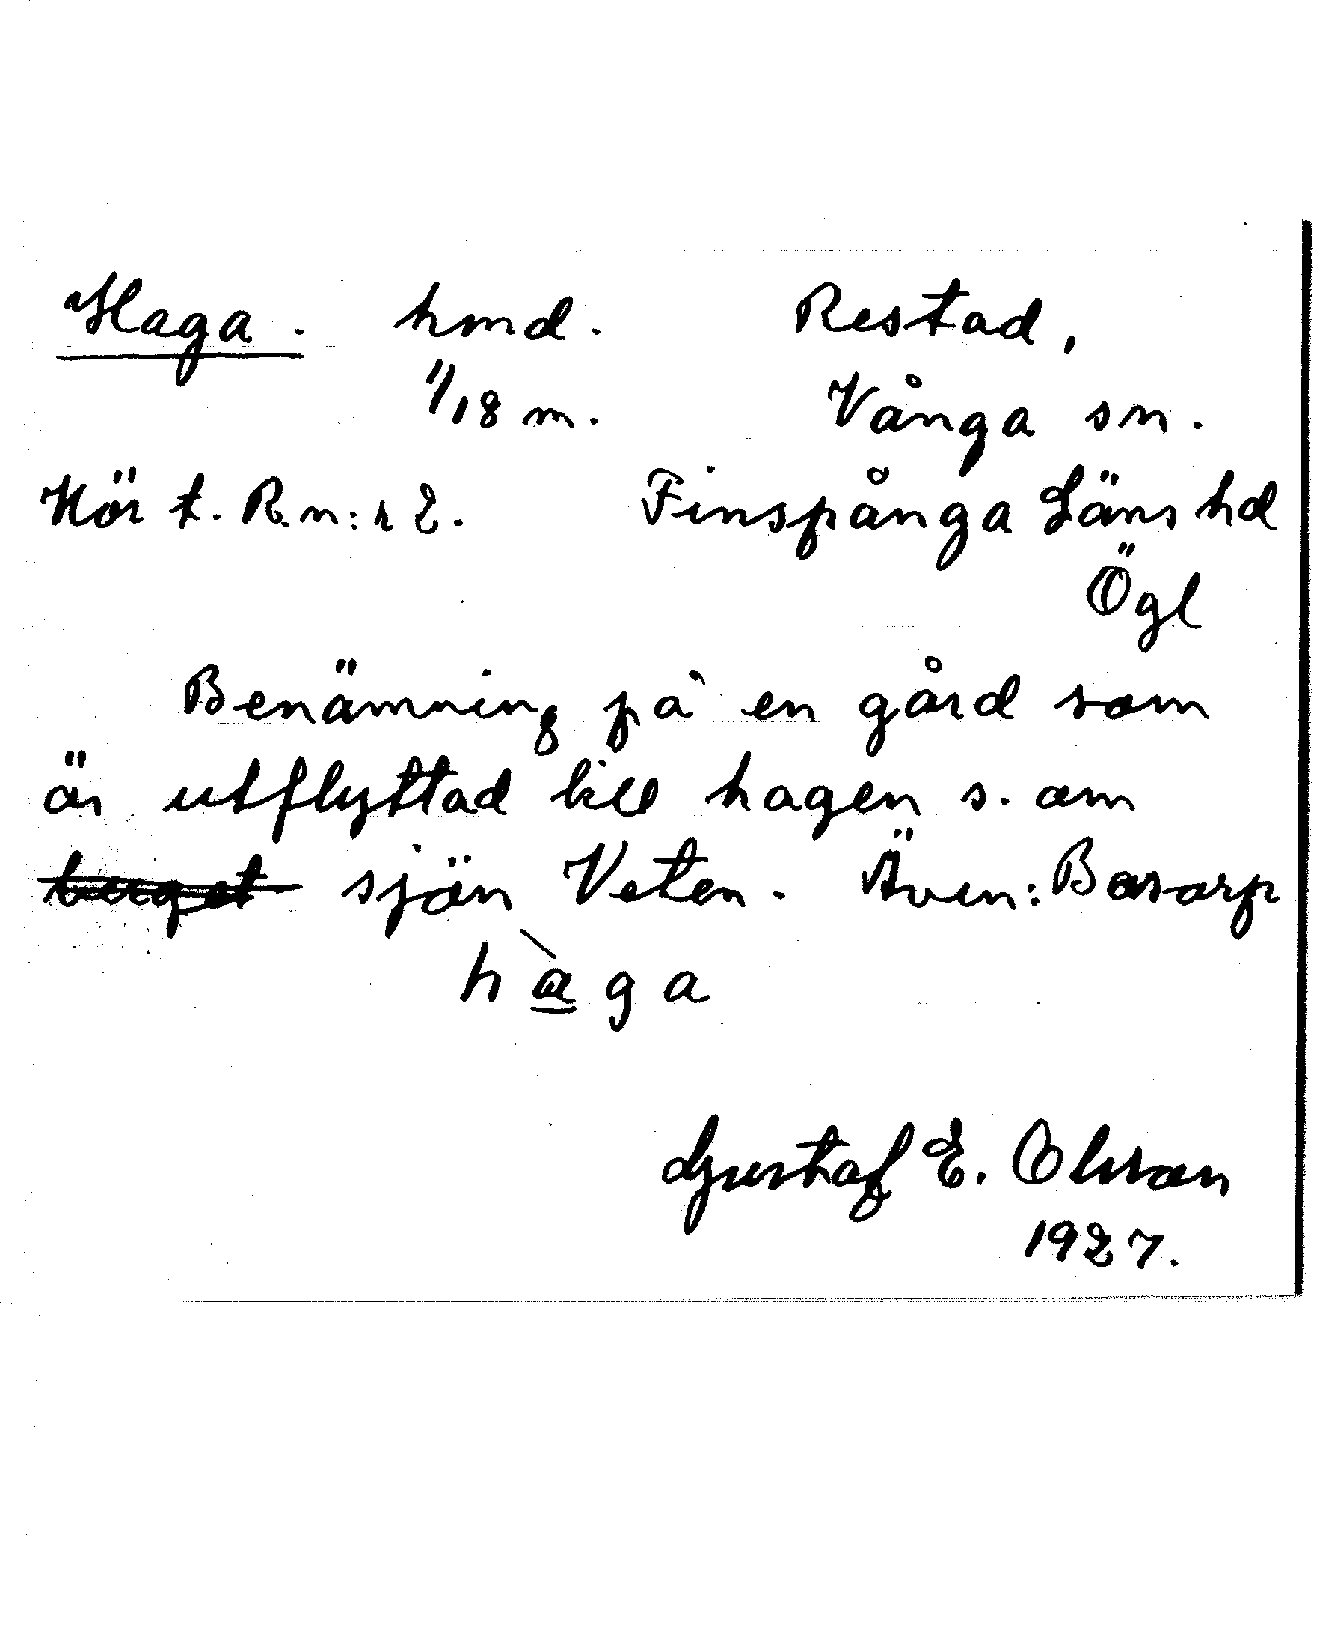 Haga. hmd. Restad,
1/18 m. Vånga sn.
Hör t. R. n:r 2. Finspånga Läns hd
Ögl
Benämning på en gård som
är utflyttad till hagen s. om
berget sjön Veten. Även: Basarp
hàga
Gustaf E. Olsson
1927.